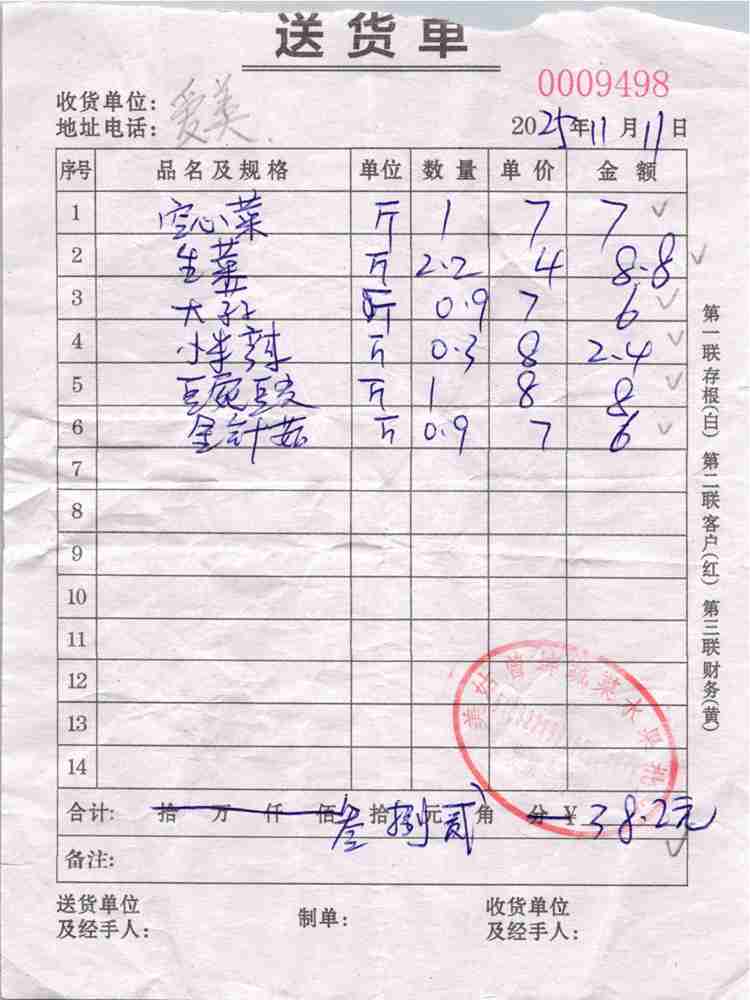 送货单
0009498
收货单位: 爱美
地址电话:
2025年11月11日
序号 品名及规格 单位 数量 单价 金额
1 空心菜 斤 1 7 7
2 生菜 斤 2.2 4 8.8
3 大 斤 0.9 7 6
4 小米辣 斤 0.3 8 2.4
5 豆 斤 1 8 8
6 金针菇 斤 0.9 7 6
7
8
9
10
11
12
13
14
合计: 拾 万 仟 佰 叁拾捌元贰角 分 ¥ 38.2元
备注:
送货单位
及经手人:
制单:
收货单位
及经手人:
第一联存根(白) 第二联客户(红) 第三联财务(黄)
蔬菜水果